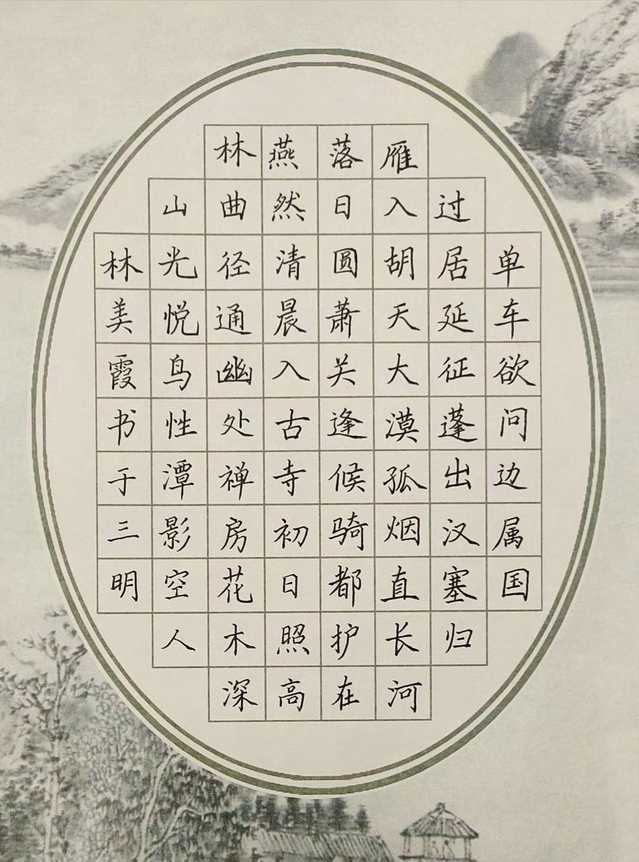 单车欲问边属国
过居延征蓬出汉塞归
雁入胡天大漠孤烟直长河
落日圆萧关逢候骑都护在
燕然清晨入古寺初日照高
林曲径通幽处禅房花木深
山光悦鸟性潭影空人
林美霞书于三明